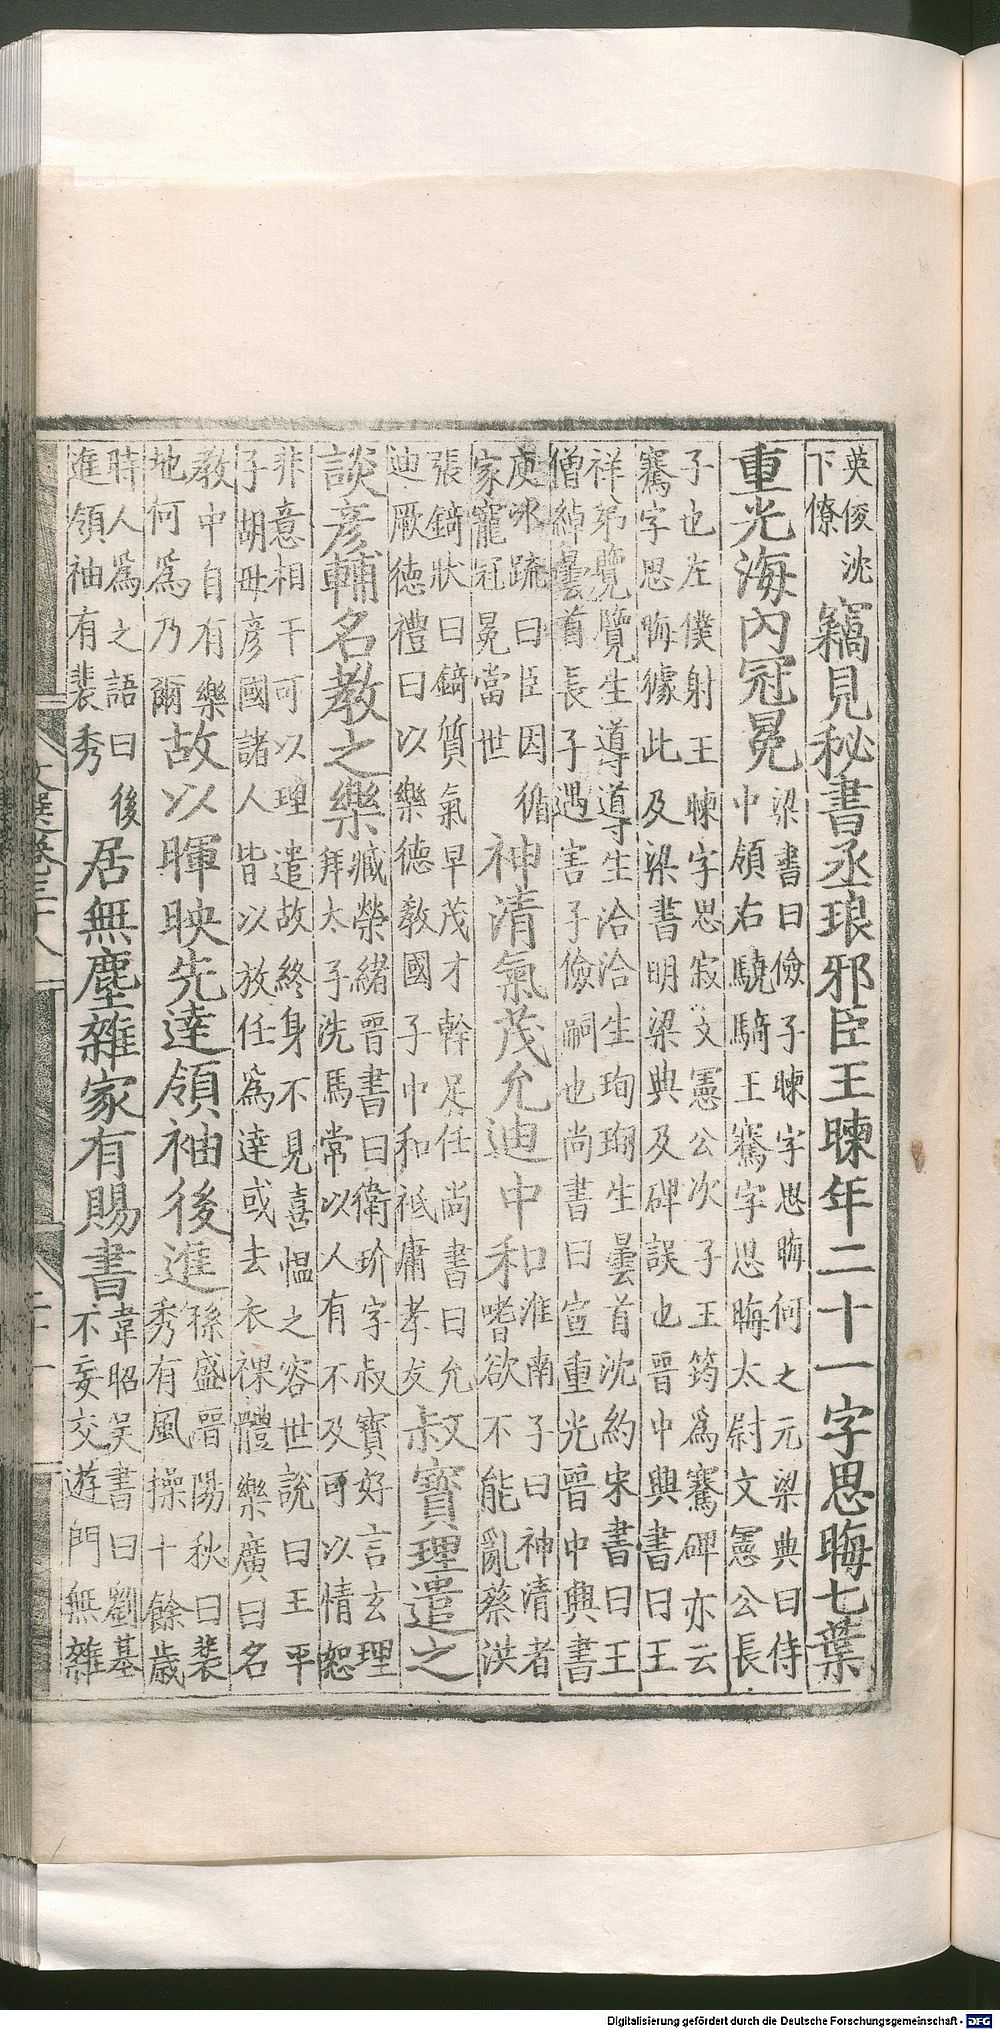 英俊沈下僚竊見秘書丞琅邪臣王暕年二十一字思晦七葉
重光海內冠冕梁書曰儉子暕字思晦何之元梁典曰侍中領右驍騎王騫字思晦太尉文憲公長
子也左僕射王暕字思寂文憲公次子王筠爲騫碑亦云騫字思晦據此及梁書明梁典及碑誤也晉中興書曰王
祥弟覽覽生導導生洽洽生珣珣生曇首沈約宋書曰王僧綽曇首長子遇害子儉嗣也尚書曰宣重光晉中興書
庾冰疏曰臣因循家寵冠冕當世神清氣茂允迪中和淮南子曰神清者嗜欲不能亂蔡洪
張錡狀曰錡質氣早茂才幹足任尚書曰允迪厥德禮曰以樂德敎國子中和祗庸孝友叔寶理遣之
談彥輔名教之樂臧榮緒晉書曰衛玠字叔寶好言玄理拜太子洗馬常以人有不及可以情恕
非意相干可以理遣故終身不見喜慍之容世說曰王平子胡毋彥國諸人皆以放任爲達或去衣裸體樂廣曰名
教中自有樂地何爲乃爾故以暉映先達領袖後進孫盛晉陽秋曰裴秀有風操十餘歲
時人爲之語曰後進領袖有裴秀居無塵雜家有賜書韋昭吳書曰劉基不妄交遊門無雜
文選卷三十八
Digitalisierung gefördert durch die Deutsche Forschungsgemeinschaft - DFG